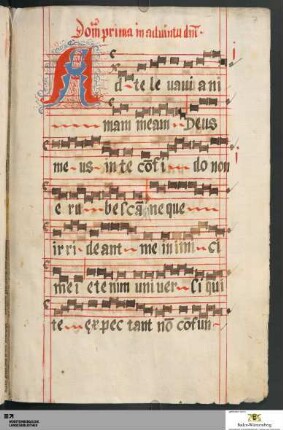 Dom̄ prima in adventu dm̄
Ad te levavi ani
mam meam Deus
me us in te cōfi do non
e ru bescā neque
irri deant me inimi ci
mei etenim univer si qui
te expec tant nō cōfun